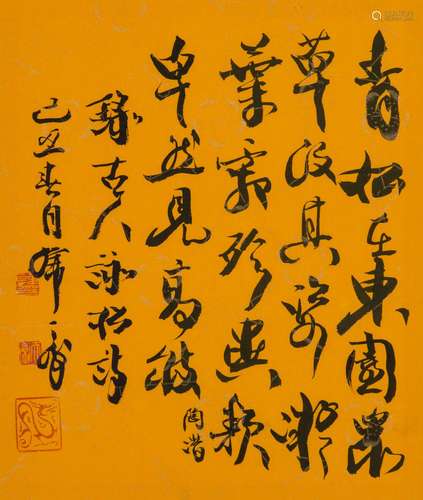 青松在東園眾
草没其姿凝
霜殄異類
卓然見高枝
陶潜
錄古人詠松詩
己丑春月